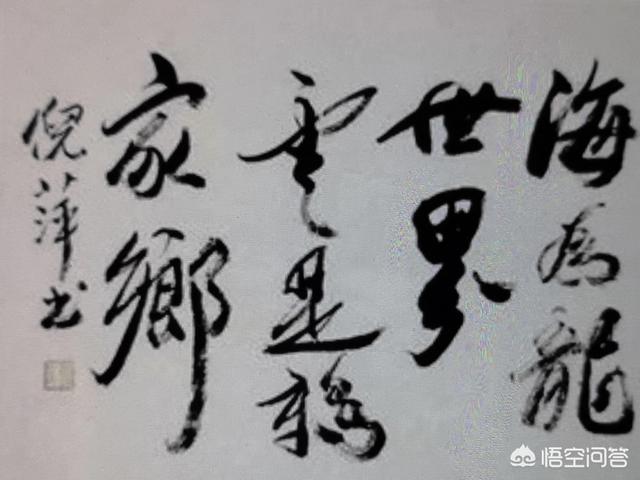 海為龍
世界
雲是鶴
家鄉
倪萍书
悟空问答